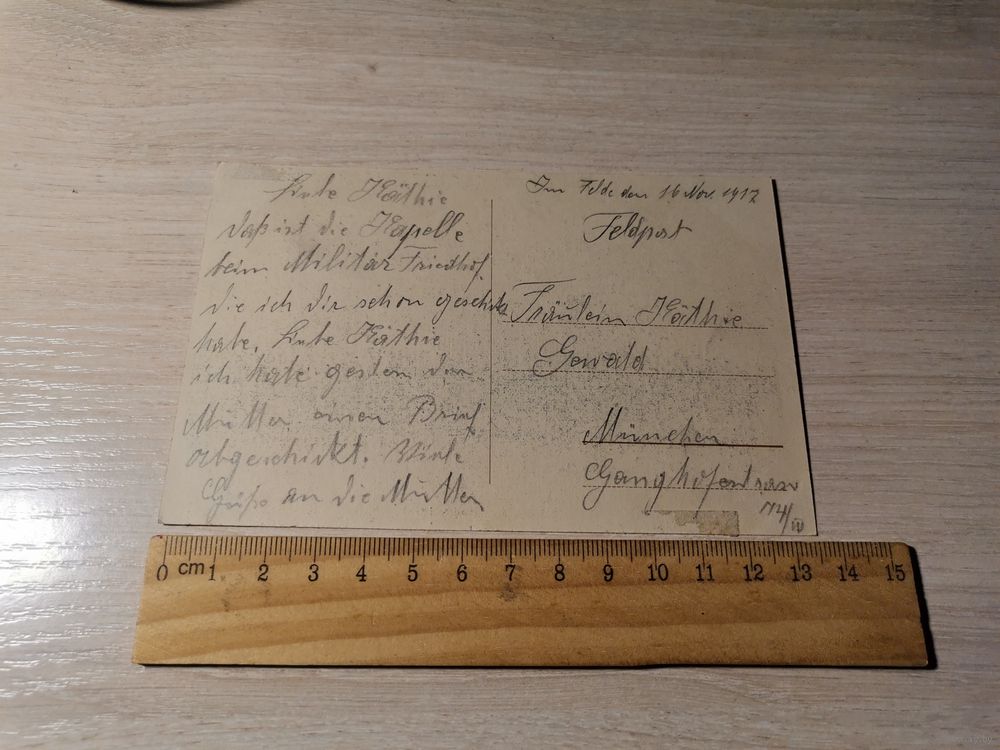 Liebe Käthie
daß ist die Kapelle
beim Militär Friedhof.
die ich dir schon geschikt
habe. Liebe Käthie
ich habe gestern der
Mutter einen Brief
abgeschickt. Viele
Grüße an die Mutter
Im Felde den 16 Nov. 1917
Feldpost
Fräulein Käthie
Gewald
München
174/IV
0 cm 1 2 3 4 5 6 7 8 9 10 11 12 13 14 15